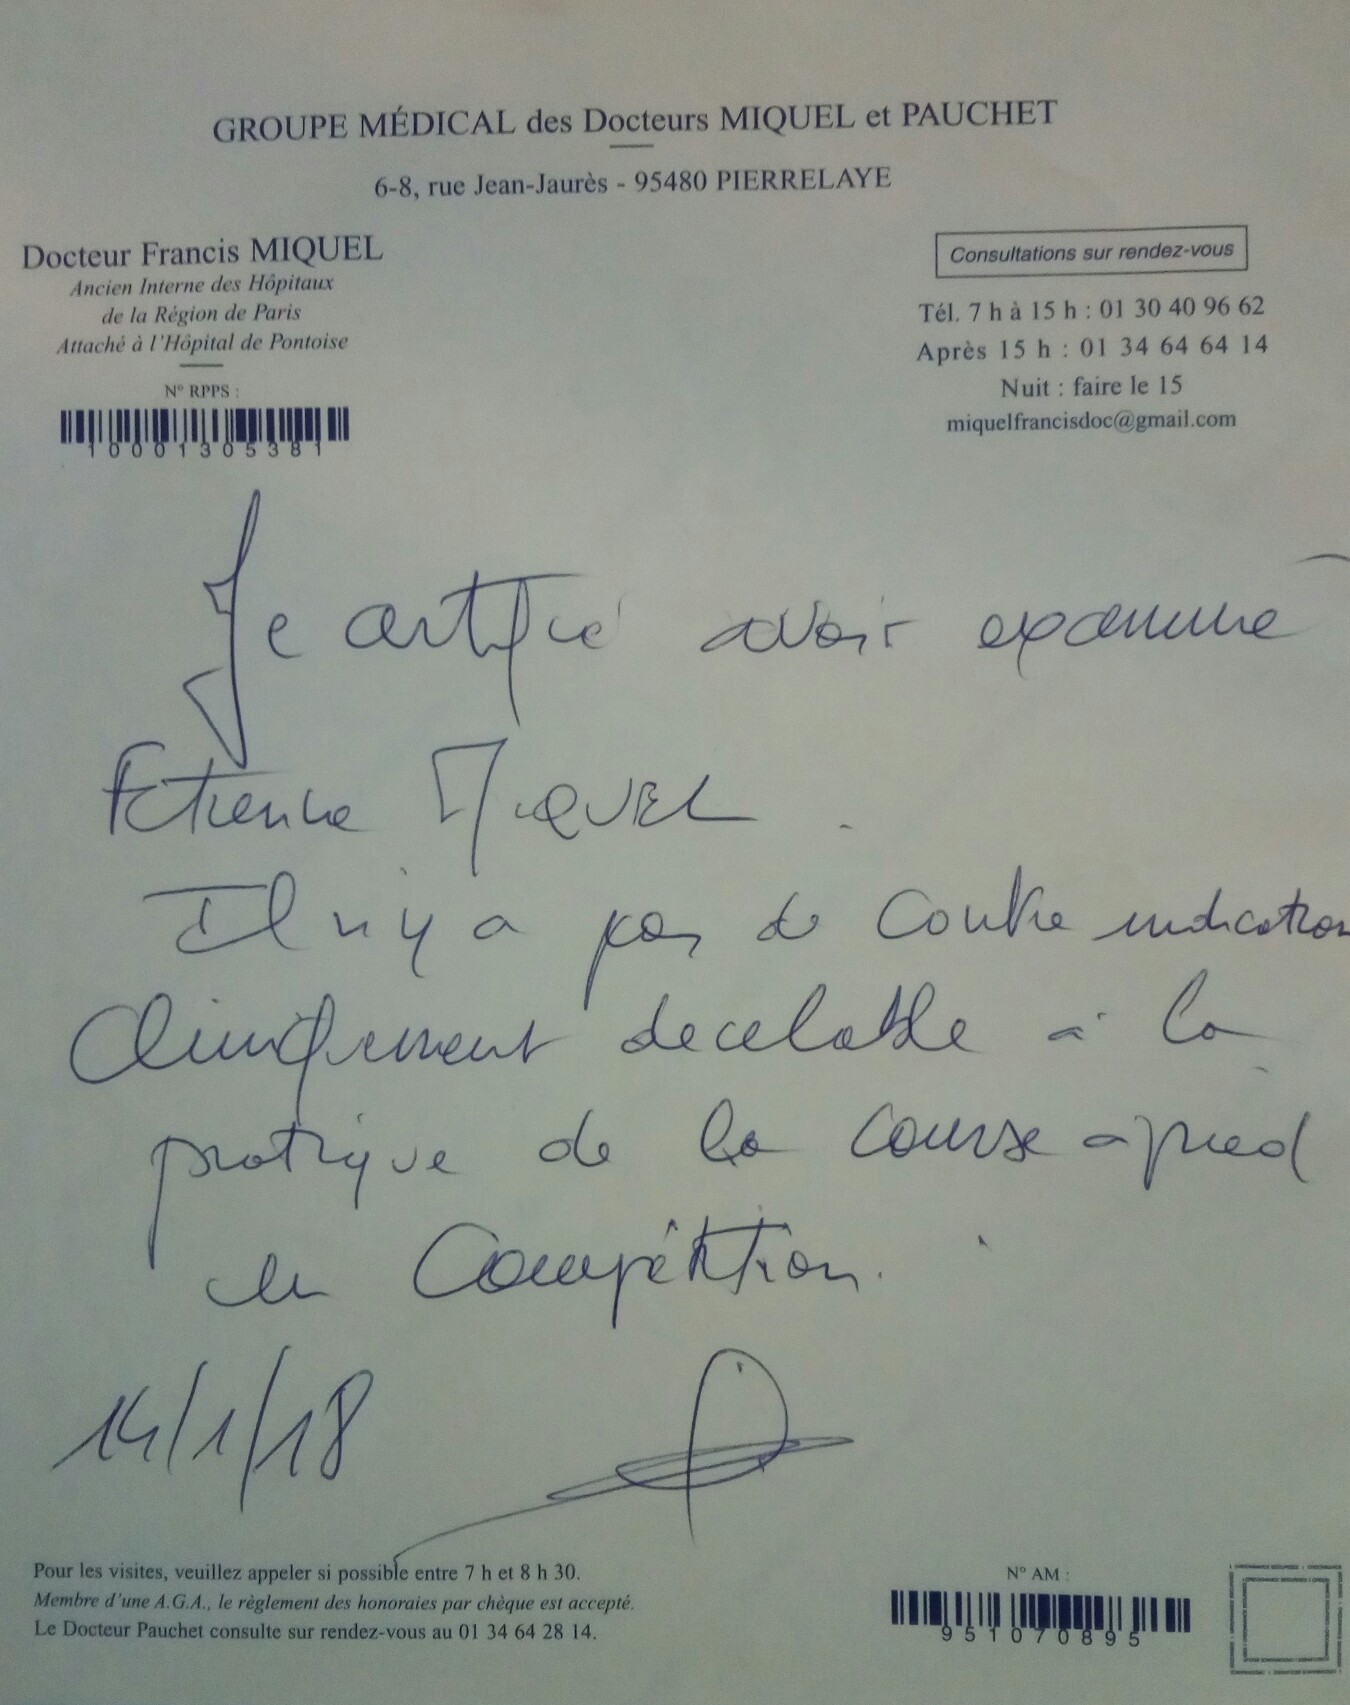 GROUPE MÉDICAL des Docteurs MIQUEL et PAUCHET
6-8, rue Jean-Jaurès - 95480 PIERRELAYE
Docteur Francis MIQUEL
Ancien Interne des Hôpitaux
de la Région de Paris
Attaché à l'Hôpital de Pontoise
N° RPPS :
10001305381
Consultations sur rendez-vous
Tél. 7 h à 15 h : 01 30 40 96 62
Après 15 h : 01 34 64 64 14
Nuit : faire le 15
miquelfrancisdoc@gmail.com
Je certifie avoir examiné
Etienne MIQUEL.
Il n'y a pas de contre indication
cliniquement decelable à la
pratique de la course à pied
en compétition.
14/1/18
Pour les visites, veuillez appeler si possible entre 7 h et 8 h 30.
Membre d'une A.G.A., le règlement des honoraies par chèque est accepté.
Le Docteur Pauchet consulte sur rendez-vous au 01 34 64 28 14.
N° AM :
951070895